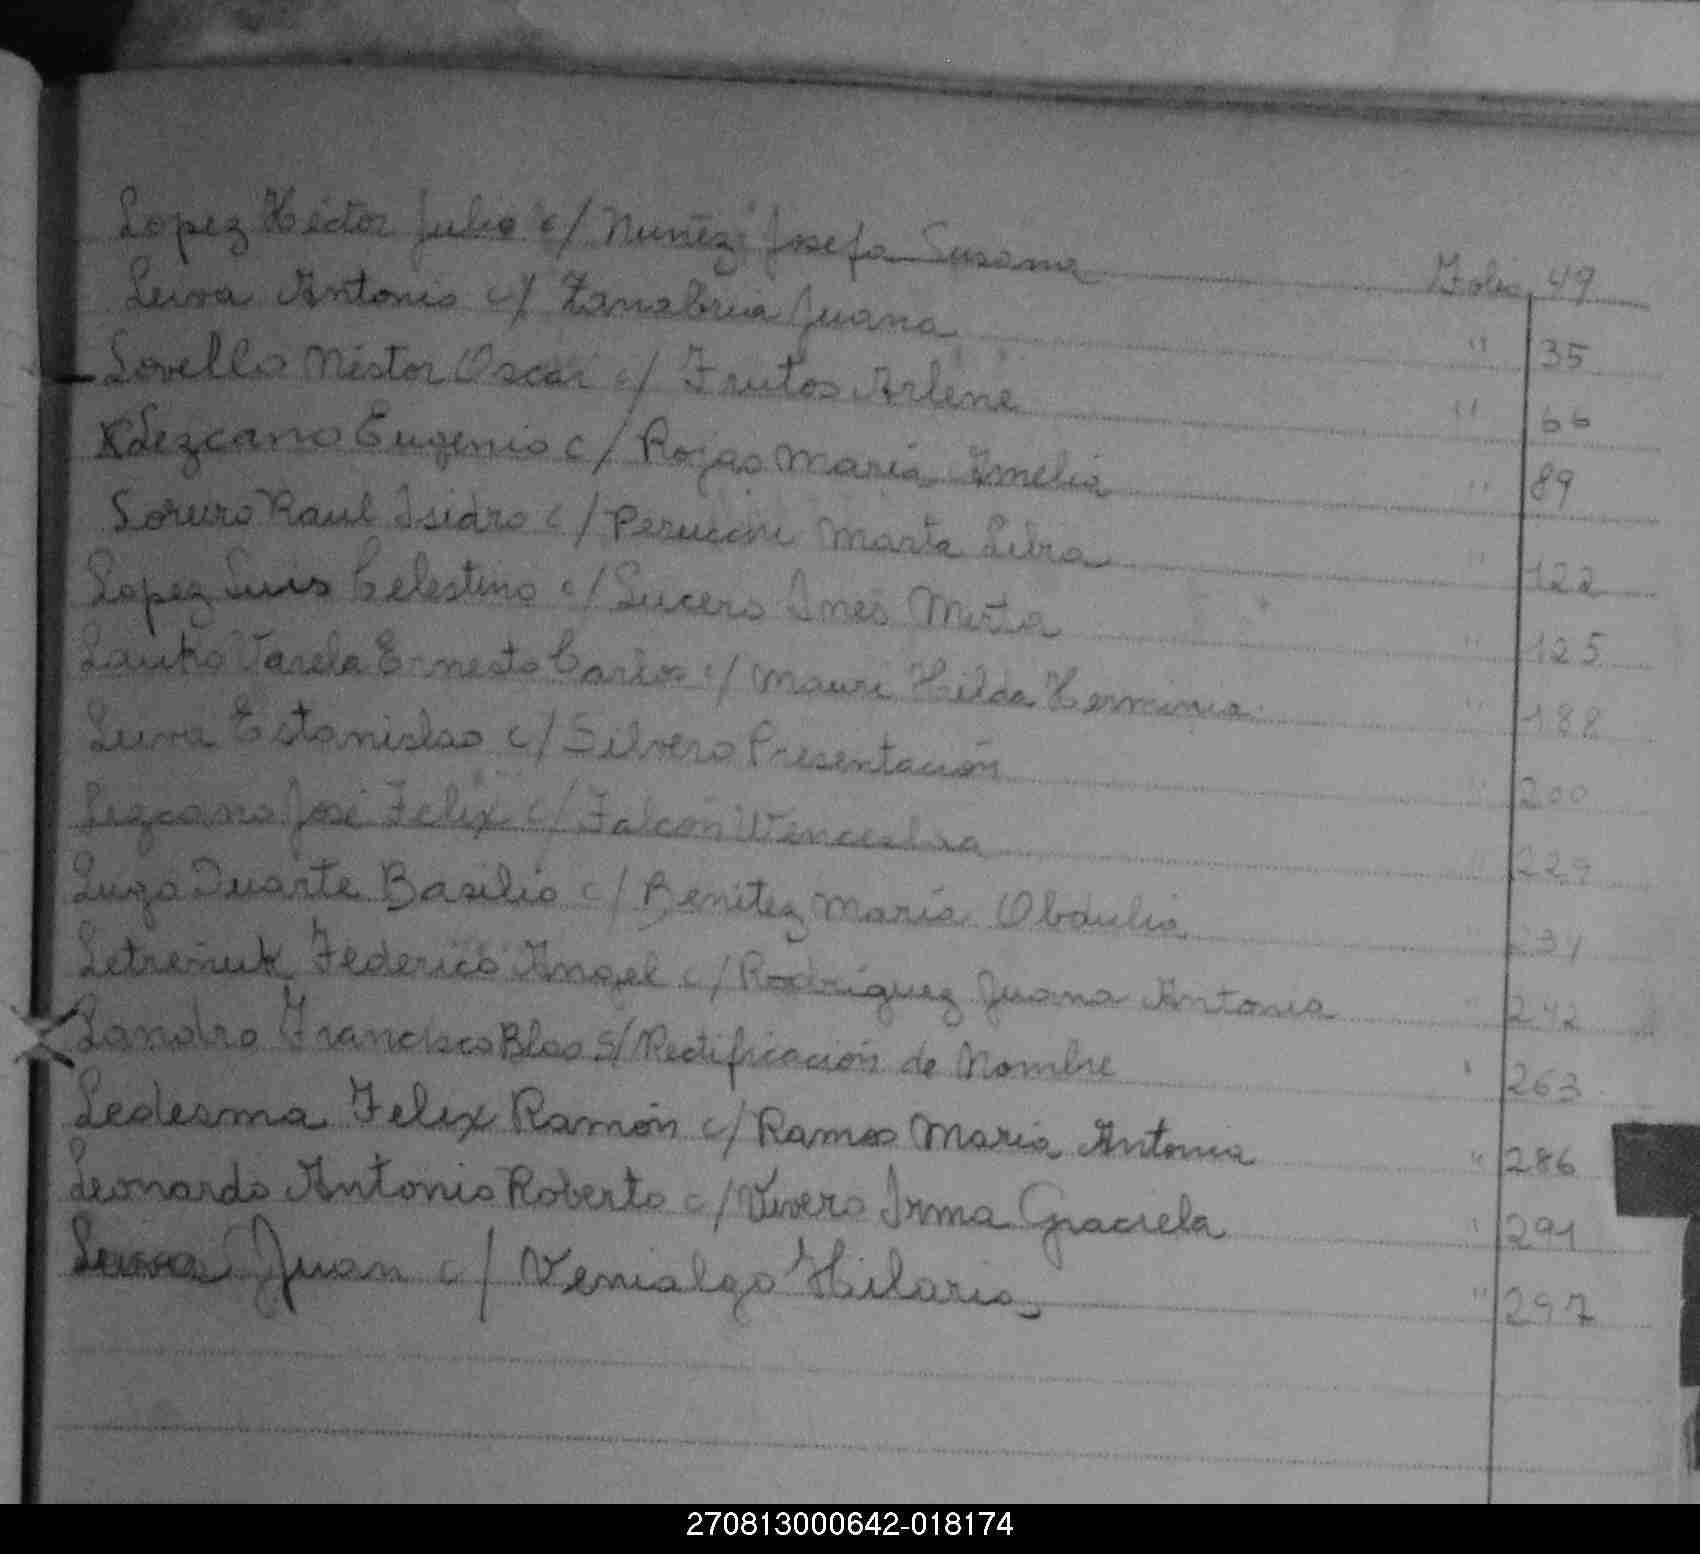 Lopez Héctor Julio c/ Nuñez Josefa Susana Folio 49
Leiva Antonio c/ Zanabria Juana " 35
Lovello Néstor Oscar c/ Frutos Arlene " 66
Lezcano Eugenio c/ Rojas Maria Amelia " 89
Raul Isidro c/ Peruccini Marta " 122
Lopez Luis Celestino c/ Lucero Ines Mirta " 125
Varela Ernesto Carlos c/ Mauri Hilda Herminia " 188
Leiva Estanislao c/ Silvero Presentación " 200
Lezcano José Felix c/ Falcón Wenceslaa " 229
Lugo Duarte Basilio c/ Benitez Maria Obdulia "
Federico Angel c/ Rodriguez Juana Antonia " 242
Landro Francisco Blas S/ Rectificación de Nombre " 263
Ledesma Felix Ramón c/ Ramos Maria Antonia " 286
Leonardo Antonio Roberto c/ Vivero Irma Graciela " 291
Leiva Juan c/ Venialgo Hilaria " 297
270813000642-018174